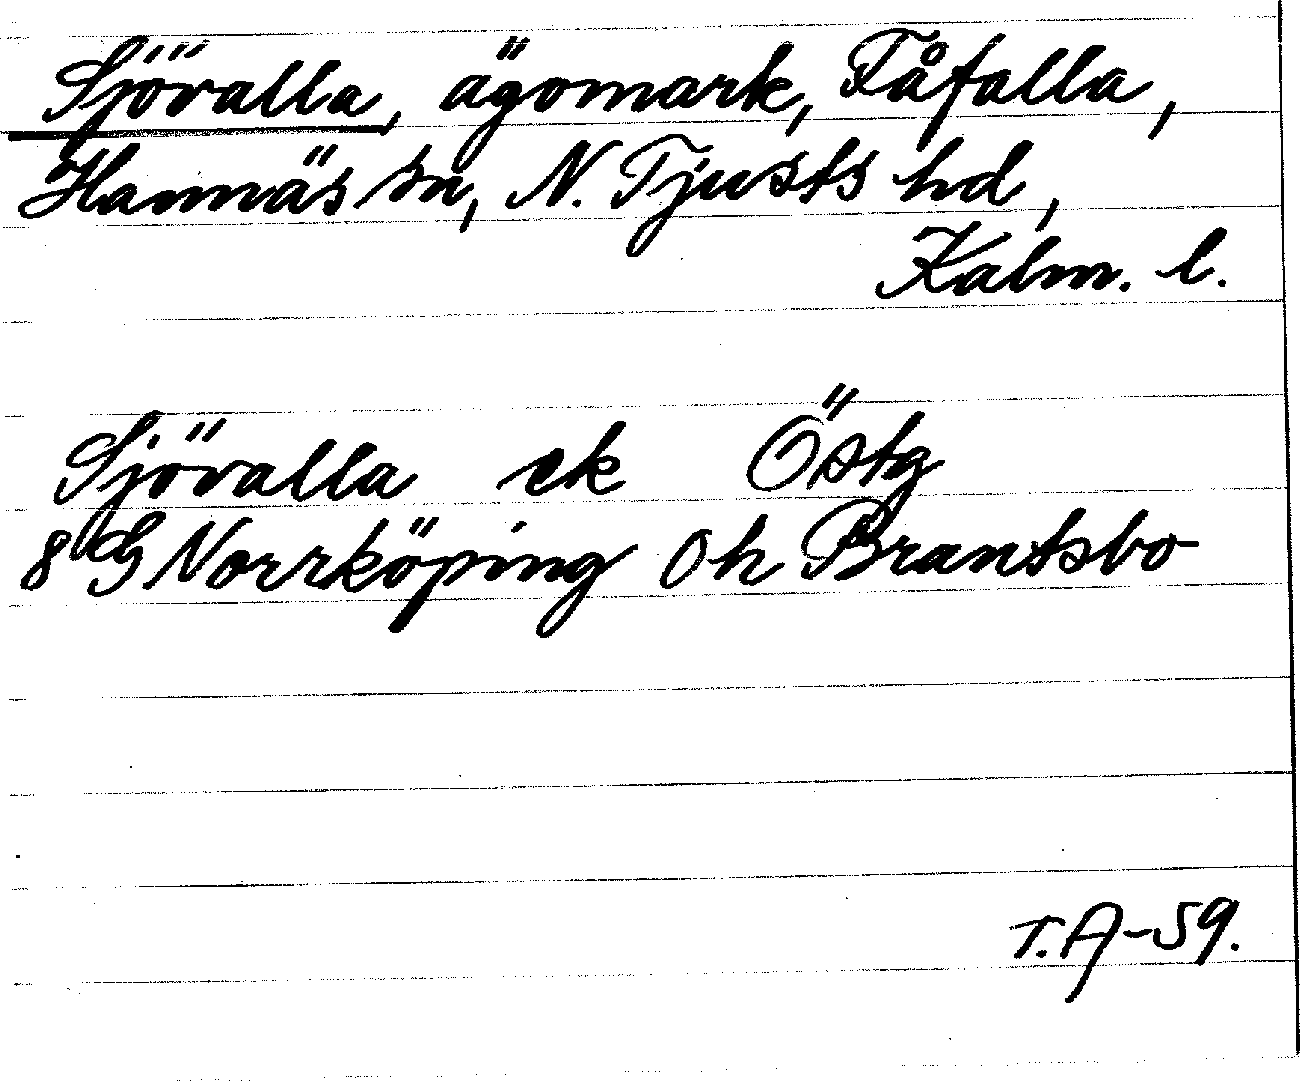 Sjövalla, ägomark, Fåfalla,
Hannäs sn, N. Tjusts hd,
Kalm. l.
Sjövalla ek Östg
8 G Norrköping Oh Brantsbo
T.A-59.